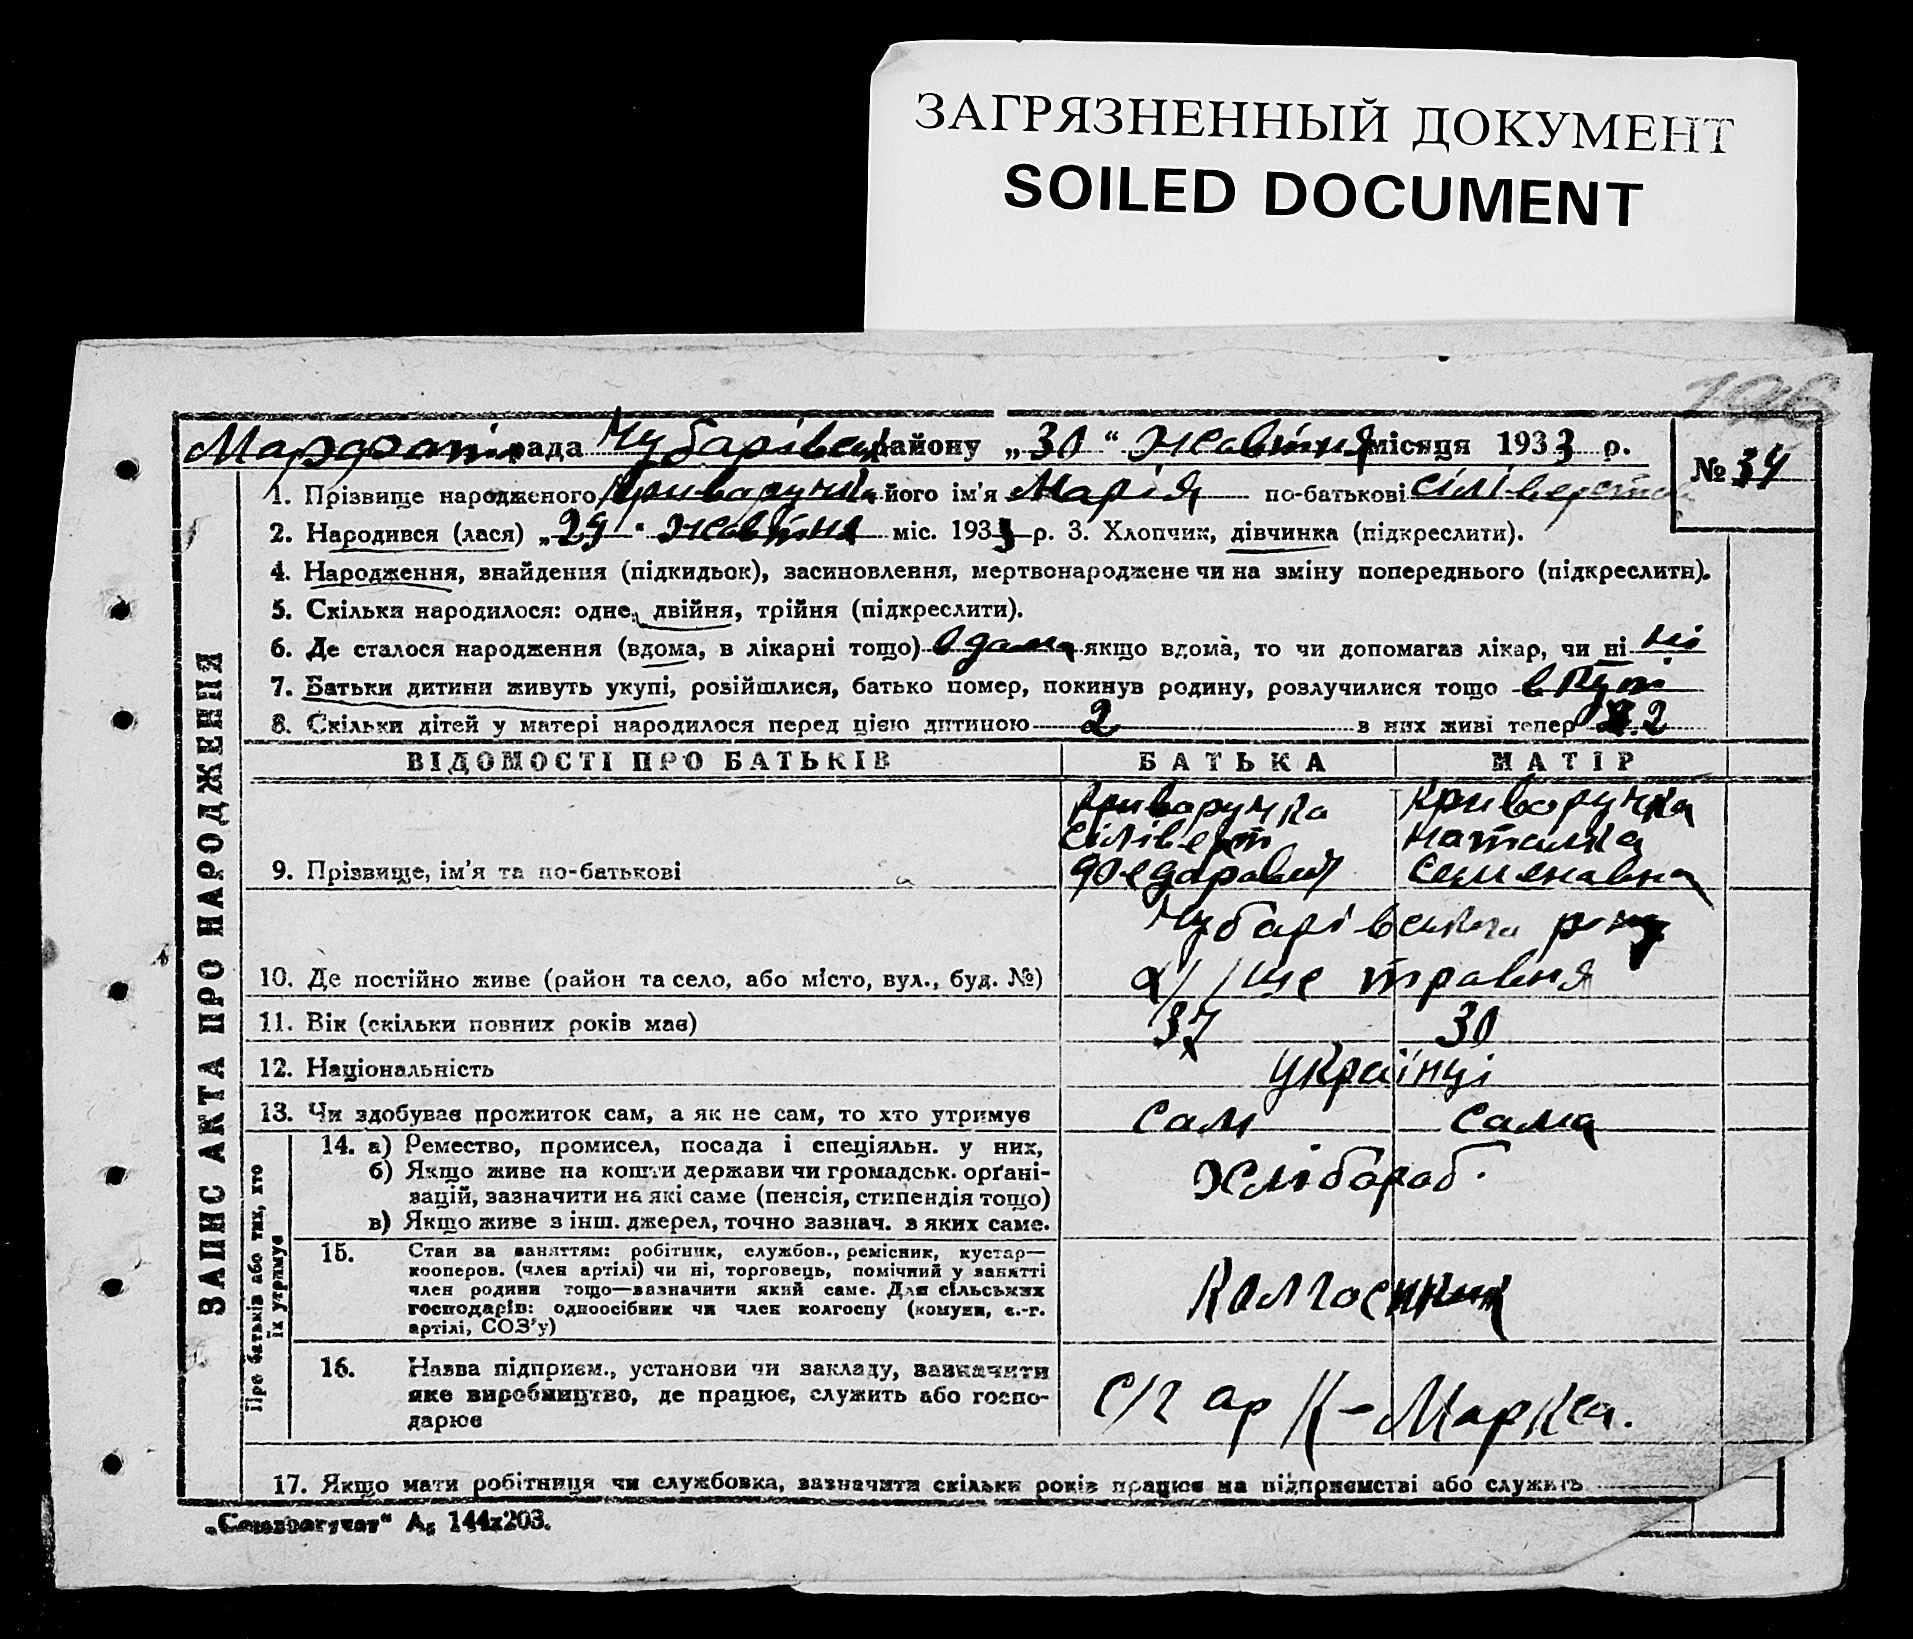 ЗАГРЯЗНЕННЫЙ ДОКУМЕНТ
SOILED DOCUMENT
196
рада Чубарівськ району „30“ жовтня місяця 1933 р.
№ 34
1. Прізвище народженого Криваручка його ім'я Марія по-батькові
2. Народився (лася) „29“ жовтня міс. 1933 р. 3. Хлопчик, дівчинка (підкреслити).
4. Народження, знайдення (підкидьок), засиновлення, мертвонароджене чи на зміну попереднього (підкреслити).
5. Скільки народилося: одне, двійня, трійня (підкреслити).
6. Де сталося народження (вдома, в лікарні тощо) вдома якщо вдома, то чи допомагав лікар, чи ні ні
7. Батьки дитини живуть укупі, розійшлися, батько помер, покинув родину, розлучилися тощо вкупі
8. Скільки дітей у матері народилося перед цією дитиною 2 в них живі тепер 2
ЗАПИС АКТА ПРО НАРОДЖЕННЯ
ВІДОМОСТІ ПРО БАТЬКІВ БАТЬКА МАТІР
Криваручка Криворучка
Сілівест Наталка
9. Прізвище, ім'я та по-батькові Федоравич Семенавна
Чубарівського р-ну
10. Де постійно живе (район та село, або місто, вул., буд. №) 1ше травня
11. Вік (скільки повних років має) 37 30
12. Національність українці
13. Чи здобуває прожиток сам, а як не сам, то хто утримує сам сама
Про батьків або тих, хто їх утримує
14. а) Ремество, промисел, посада і спеціяльн. у них,
б) Якщо живе на кошти держави чи громадськ. орґані-
зацій, зазначити на які саме (пенсія, стипендія тощо) Хлібароб.
в) Якщо живе з інш. джерел, точно зазнач. з яких саме.
15. Стан за заняттям: робітник, службов., ремісник, кустар—
кооперов. (член артілі) чи ні, торговець, помічний у занятті
член родини тощо—зазначити який саме. Для сільських Колгосники
господарів: одноосібник чи член колгоспу (комуни, с.-г.
артілі, СОЗ'у)
16. Назва підприєм., установи чи закладу, зазначити
яке виробництво, де працює, служить або госпо- С/г ар К-Маркса.
дарює
17. Якщо мати робітниця чи службовка, зазначити скільки років працює на підприємстві або служить
А5 144х203.